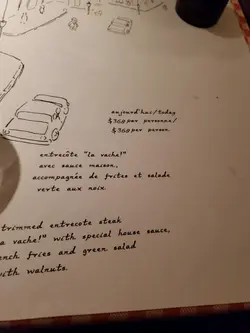 aujourd'hui/today
$368 per personne/
$368 per person
entrecôte "la vache!"
avec sauce maison,
accompagnée de frites et salade
verte aux noix
trimmed entrecote steak
a vache!" with special house sauce,
ench fries and green salad
with walnuts.